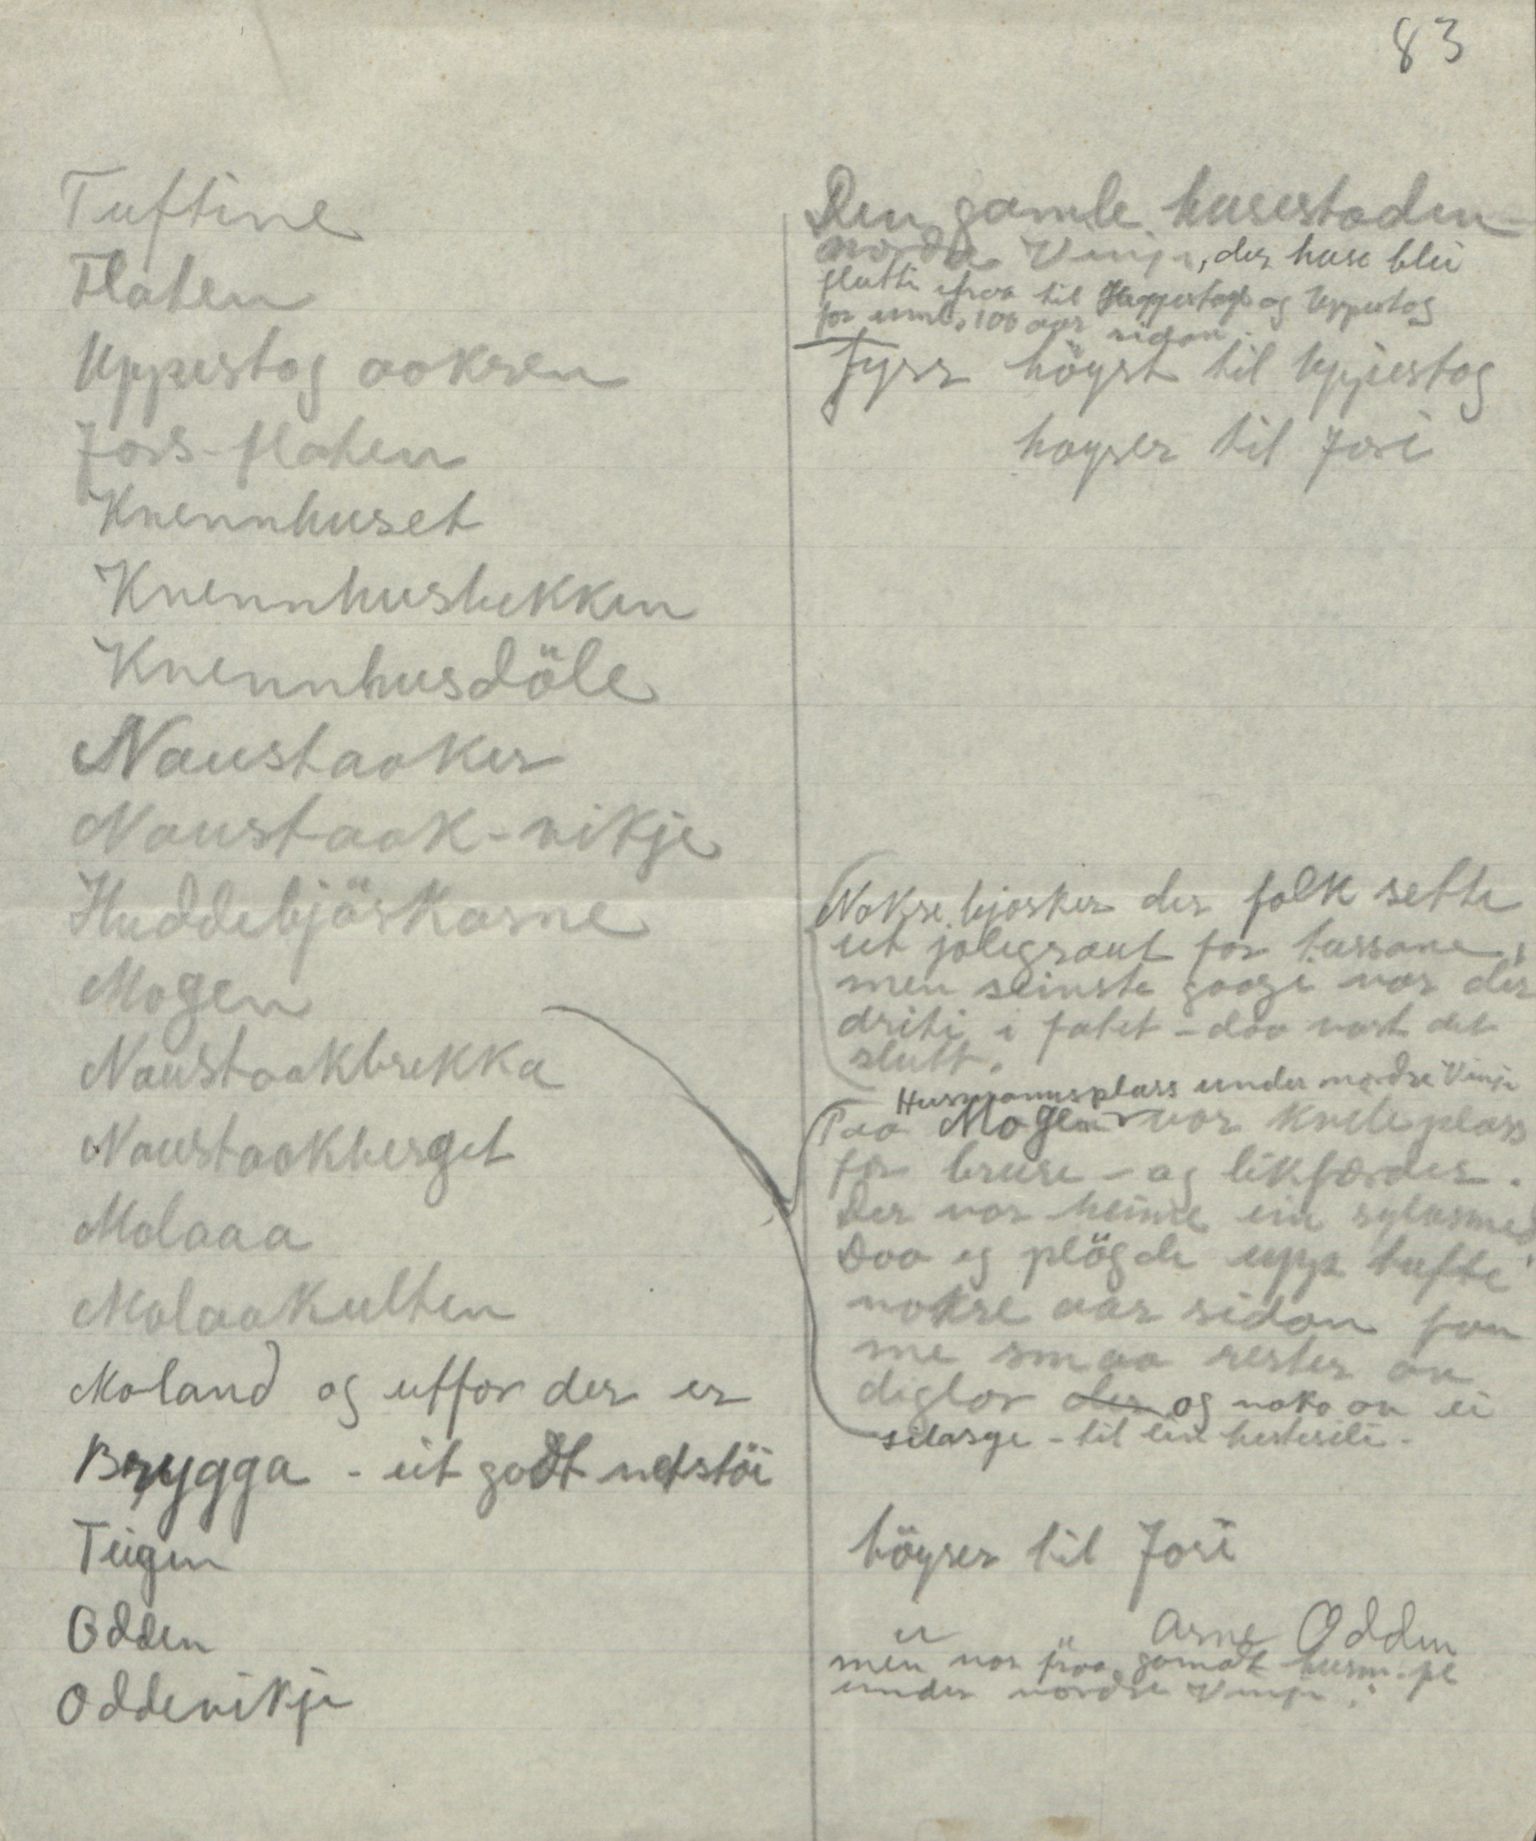 83
Tuftine
Flaten
Uppistog aakren
Joss-flaten
Kvennhuset
Kvennhusbekken
Kvennhusdöle
Naustaaker
Naustaak-vikje
Huddebjörkarne
Mogen
Naustaakbrekka
Naustaakberget
Molaaa
Molaakulten
Moland og utfor der er
Brygga - eit godt notstöi
Teigen
Odden
Oddevikje
Den gamle husestaden
nordre Vinje, der huse blei
flutti ifraa til og Uppistog
for umlag 100 aar sidan.
Fyrr höyrt til Uppistog
hoyrer til Josi
Nokre bjorker der folk sette
ut jolegraut for tussane,
men seinste googe var der
driti i fatet - daa vart det
slutt.
Husmannsplass under nordre Vinje
Paa Mogen var kvileplass
for bruse - og likfærder.
Der var heime ein sylvsmed
Daa eg plögde upp tufte
nokre aar sidan fan
me smaa rester av
diglar og noko av ei
- til ein hestesele.
höyrer til Josi
er Arne Odden
men var fraa gamalt husm.pl
under nordre Vinje.